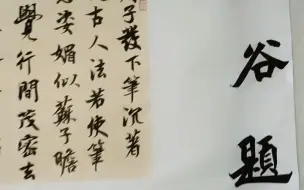 谷題
子發下筆沉著
古人法若使筆
姿媚似蘇子瞻
覺行間茂密去